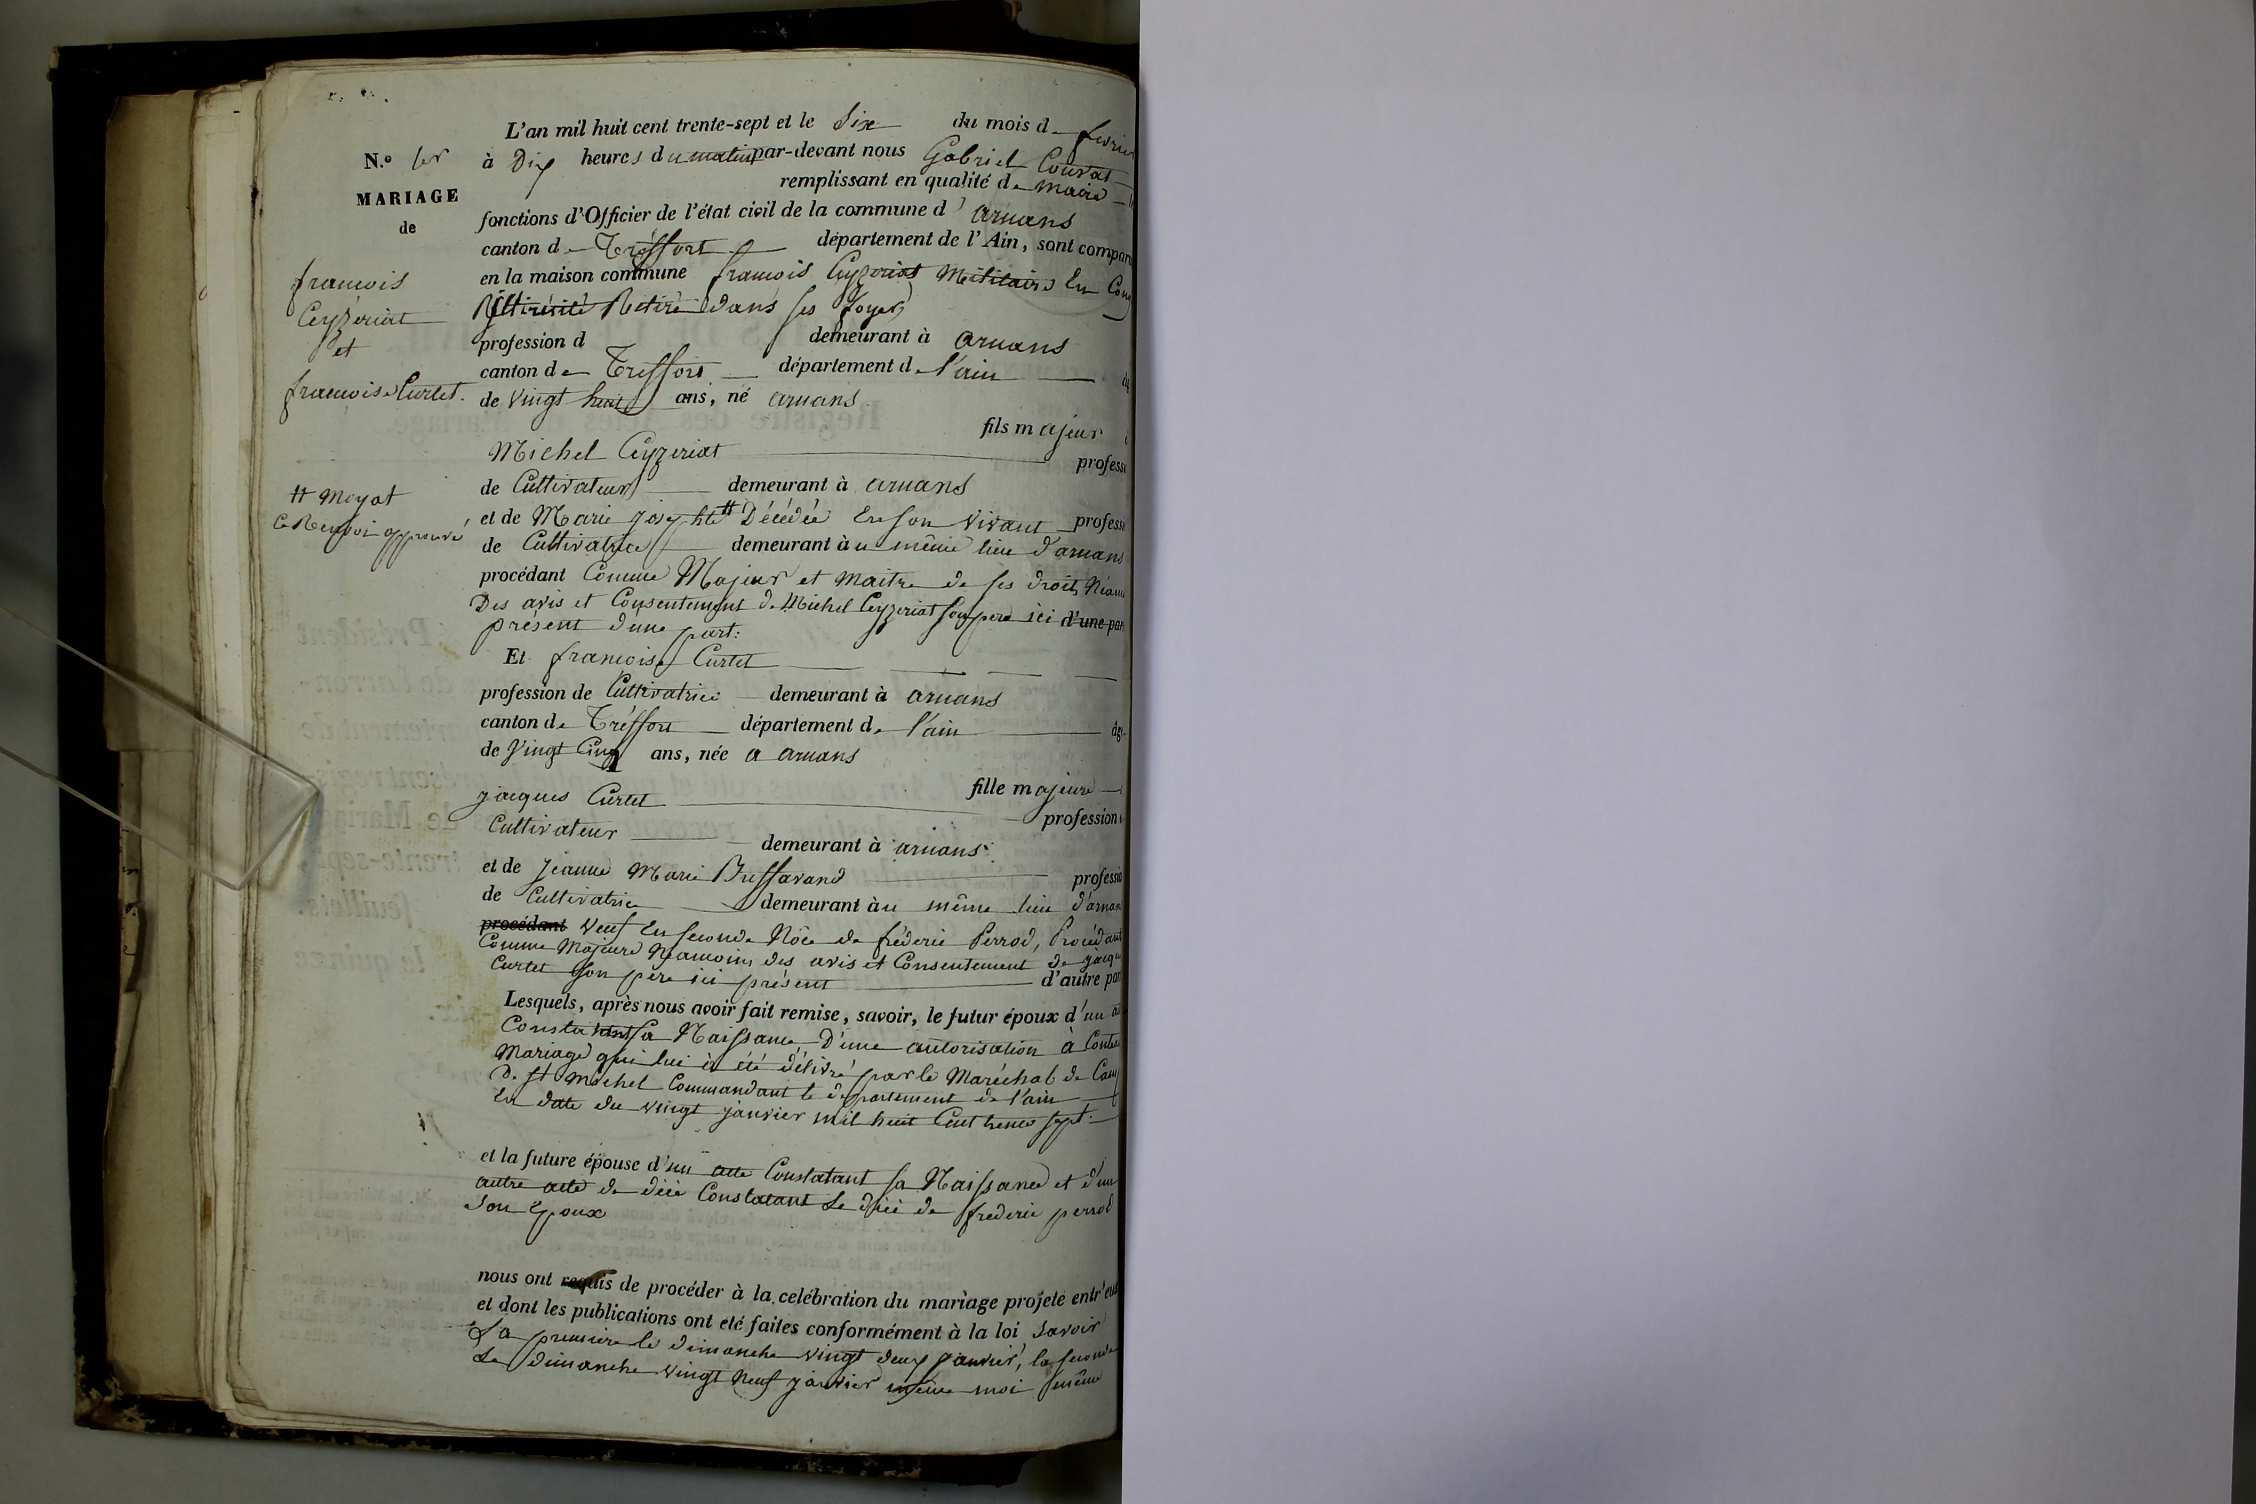 L'an mil huit cent trente-sept et le Six du mois d fevrie
N.º 1er
à Dix heures du matin par-devant nous Gabriel Couvat
remplissant en qualité de Maire
MARIAGE
de
fonctions d'Officier de l'état civil de la commune d' arnans
canton de Tréffort département de l'Ain, sont compar
en la maison commune francois Ceyzeriat Militaire En Con
Retiré dans ses foyers
francois
Ceyzériat
et
francoise Curtet.
profession d demeurant à arnans
canton de Treffort département de l'ain âg
de Vingt huit ans, né arnans
fils majeur
Michel Ceyzeriat profess
de Cultivateur demeurant à arnans
et de Marie josephte # Décédée En son Vivant profess
# Moyat
Ce Renvoi approuvé
de Cultivatrice demeurant à u même lieu d'arnans
procédant Comme Majeur et Maitre de ses droits Néam
Des avis et Consentement de Michel Ceyzeriat son pere ici d'une par
présent d'une part:
Et francoise Curtet
profession de Cultivatrice demeurant à arnans
canton de Tréffort département de l'ain âg
de Vingt Cinq ans, née a arnans
fille majeure
jacques Curtet profession
Cultivateur demeurant à arnans
et de Jeanne Marie Buffavand professio
de Cultivatrice demeurant àu même lieu d'arnan
procédant Veuf En seconde Nôce de fréderic Perrod, Procédant
Comme Majeure Néamoins des avis et Consentement de jacqu
Curtet son père ici présent d'autre par
Lesquels, après nous avoir fait remise, savoir, le futur époux d'un
Constatant sa Naissance D'une autorisation à Contra
Mariage qui lui à été délivré par le Maréchal de Cam
De St Michel Commandant le département de l'ain
En date du vingt janvier mil huit Cent trente sept.
et la future épouse d'un acte Constatant sa Naissance et d'un
autre acte de décè Constatant Le décè de frederic perrod
Son Epoux
nous ont requis de procéder à la celébration du mariage projeté entr'eux
et dont les publications ont eté faites conformément à la loi Savoir
La premiere le dimanche vingt deux janvier, la seconde
Le Dimanche vingt Neuf janvier même moi même